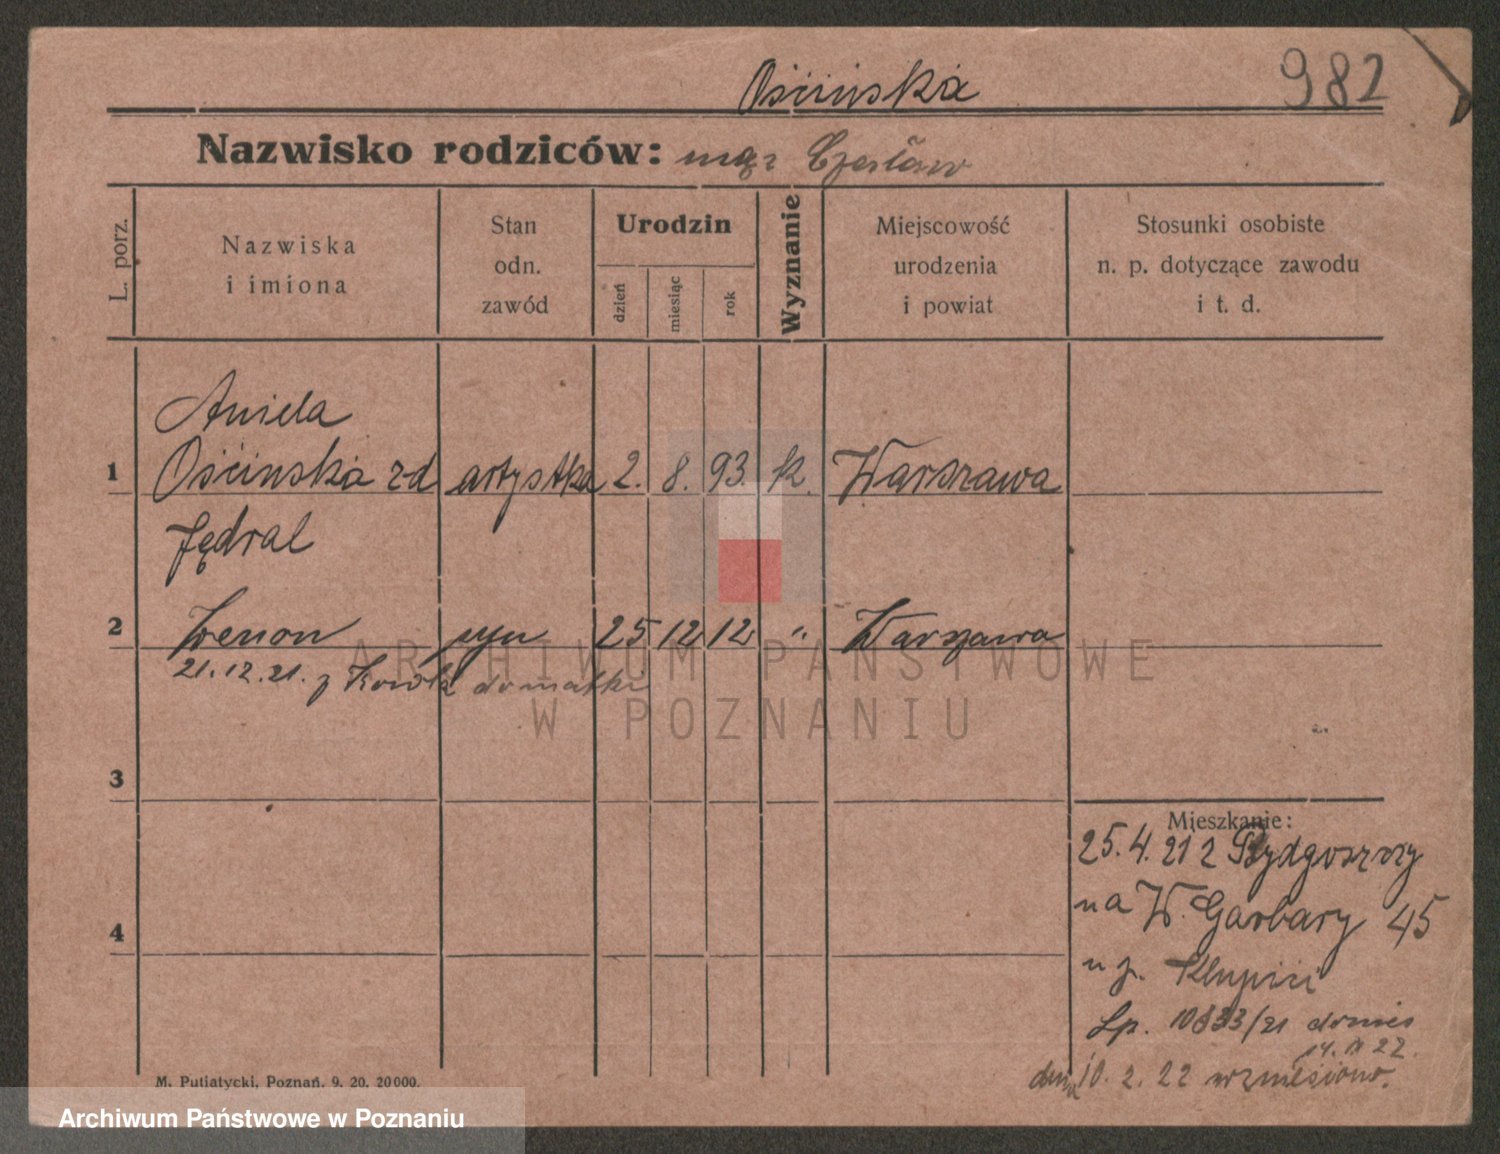 Ościńska
982
Nazwisko rodziców: mąż Czesław
L. porz.
Nazwiska
i imiona
Stan
odn.
zawód
Urodzin
dzień
miesiąc
rok
Wyznanie
Miejscowość
urodzenia
i powiat
Stosunki osobiste
n. p. dotyczące zawodu
i t. d.
Aniela
1 Ościńska z-d artystka 2. 8. 93. k. Warszawa
Jędral
2 Zenon syn 25 12 12 " Warszawa
21.12.21. z Kowla do matki
ARCHIWUM PAŃSTWOWE
W POZNANIU
3
Mieszkanie:
25.4.21 z Bydgoszczy
na W. Garbary 45
4
u p.
Lp. 10833/21 donies
14. 22.
10. 2. 22 wzmesiono.
M. Putiatycki, Poznań. 9. 20. 20000.
Archiwum Państwowe w Poznaniu